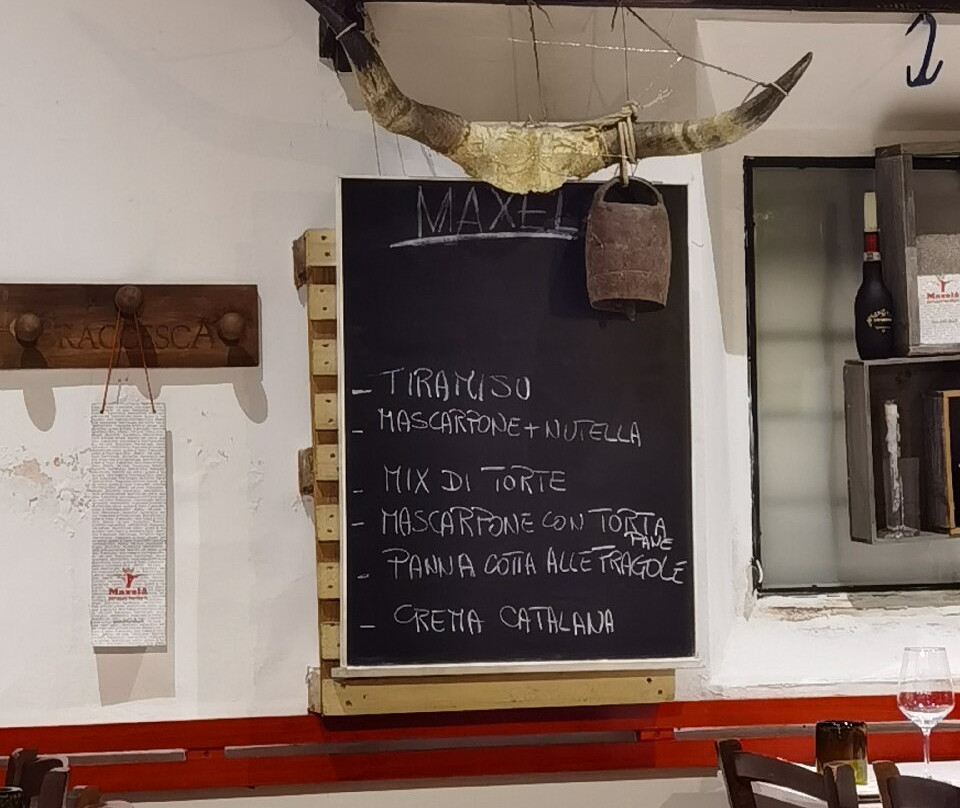 MAXEL
- TIRAMISU
- MASCARPONE + NUTELLA
- MIX DI TORTE
- MASCARPONE CON TORTA
PANE
- PANNA COTTA ALLE FRAGOLE
- CREMA CATALANA
BRACCESCA
Maxelâ
Maxelâ